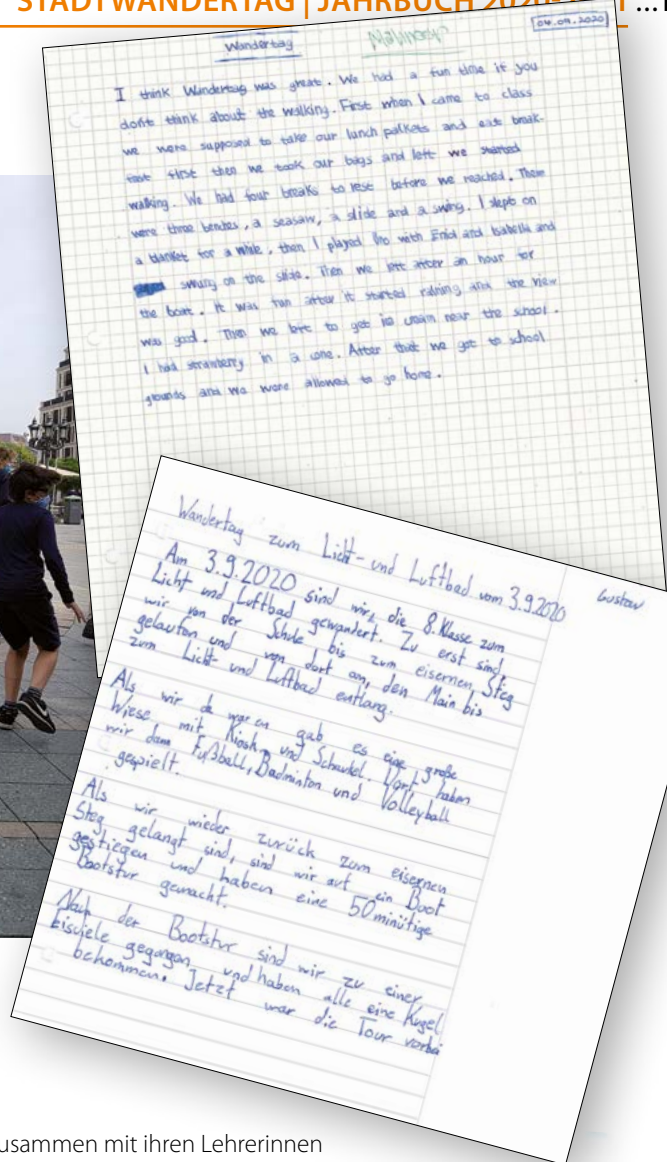 STADTWANDERTAG | JAHRBUCH 2020-
Wandertag
04.09.2020
I think Wandertag was great. We had a fun time if you
don't think about the walking. First when I came to class
we were supposed to take our lunch and eat break-
fast first then we took our bags and left we started
walking. We had four breaks to rest before we reached. There
were three benches, a seasaw, a slide and a swing. I slept on
a blanket for a while, then I played Uno with Enid and Isabella and
swung on the slide. Then we left after an hour for
the boat. It was fun after it started raining and the view
was good. Then we left to get ice cream near the school.
I had strawberry in a cone. After that we got to school
grounds and we were allowed to go home.
Wandertag zum Licht- und Luftbad vom 3.9.2020
Gustav
Am 3.9.2020 sind wir, die 8. Klasse zum
Licht und Luftbad gewandert. Zu erst sind
wir von der Schule bis zum eisernen Steg
gelaufen und von dort an, den Main bis
zum Licht- und Luftbad entlang.
Als wir da waren gab es eine große
Wiese mit Kiosk und Schaukel. Dort haben
wir dann Fußball, Badminton und Volleyball
gespielt.
Als wir wieder zurück zum eisernen
Steg gelangt sind, sind wir auf ein Boot
gestiegen und haben eine 50minütige
Bootstur gemacht.
Nach der Bootstur sind wir zu einer
Eisdiele gegangen und haben alle eine Kugel
bekommen. Jetzt war die Tour vorbei
usammen mit ihren Lehrerinnen